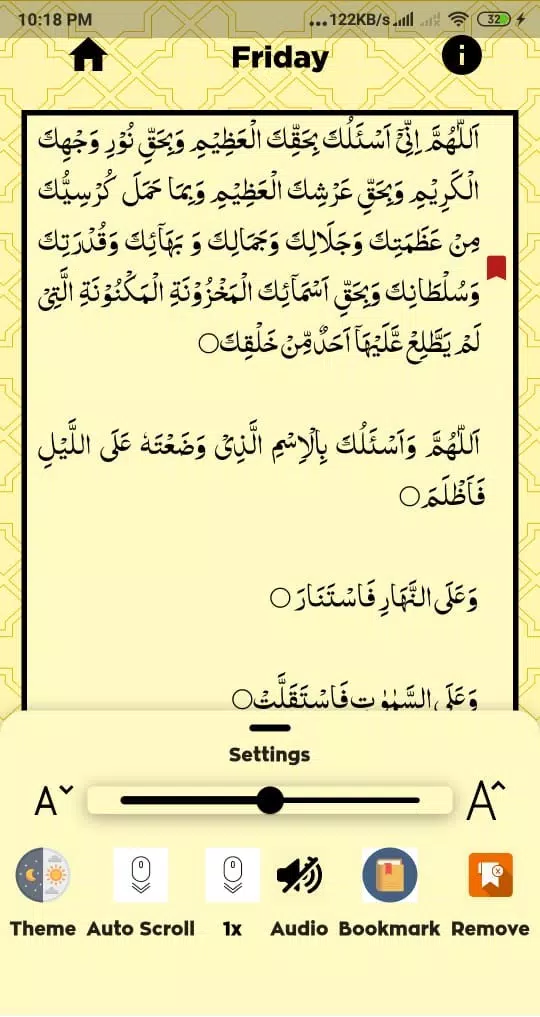 10:18 PM ...122KB/s 32
Friday
اَللّٰهُمَّ اِنِّيْٓ اَسْئَلُكَ بِحَقِّكَ الْعَظِيْمِ وَبِحَقِّ نُوْرِ وَجْهِكَ
الْكَرِيْمِ وَبِحَقِّ عَرْشِكَ الْعَظِيْمِ وَبِمَا حَمَلَ كُرْسِيُّكَ
مِنْ عَظَمَتِكَ وَجَلَالِكَ وَجَمَالِكَ وَ بَهَآئِكَ وَقُدْرَتِكَ
وَسُلْطَانِكَ وَبِحَقِّ اَسْمَآئِكَ الْمَخْزُوْنَةِ الْمَكْنُوْنَةِ الَّتِيْ
لَمْ يَطَّلِعْ عَلَيْهَآ اَحَدٌ مِّنْ خَلْقِكَ○
اَللّٰهُمَّ وَاَسْئَلُكَ بِالْاِسْمِ الَّذِيْ وَضَعْتَهٗ عَلَى اللَّيْلِ
فَاَظْلَمَ○
وَعَلَى النَّهَارِ فَاسْتَنَارَ○
وَعَلَى السَّمٰوٰتِ فَاسْتَقَلَّتْ○
Settings
A A
Theme Auto Scroll 1x Audio Bookmark Remove